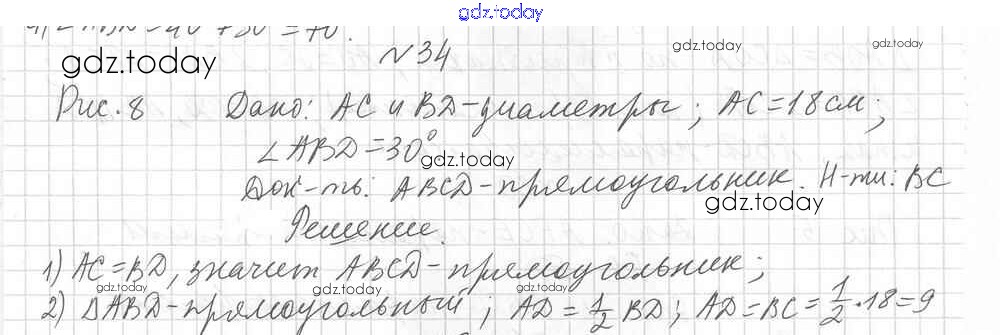 gdz.today
N34
gdz.today
gdz.today
Рис. 8 Дано: AC и BD - диаметры; AC = 18 см;
∠ABD = 30°
gdz.today
Док-ть: ABCD - прямоугольник. Н-ти: BC
gdz.today
Решение.
1) AC = BD, значит ABCD - прямоугольник;
gdz.today gdz.today gdz.today
2) ΔABD - прямоугольный; AD = 1/2 BD; AD = BC = 1/2 · 18 = 9